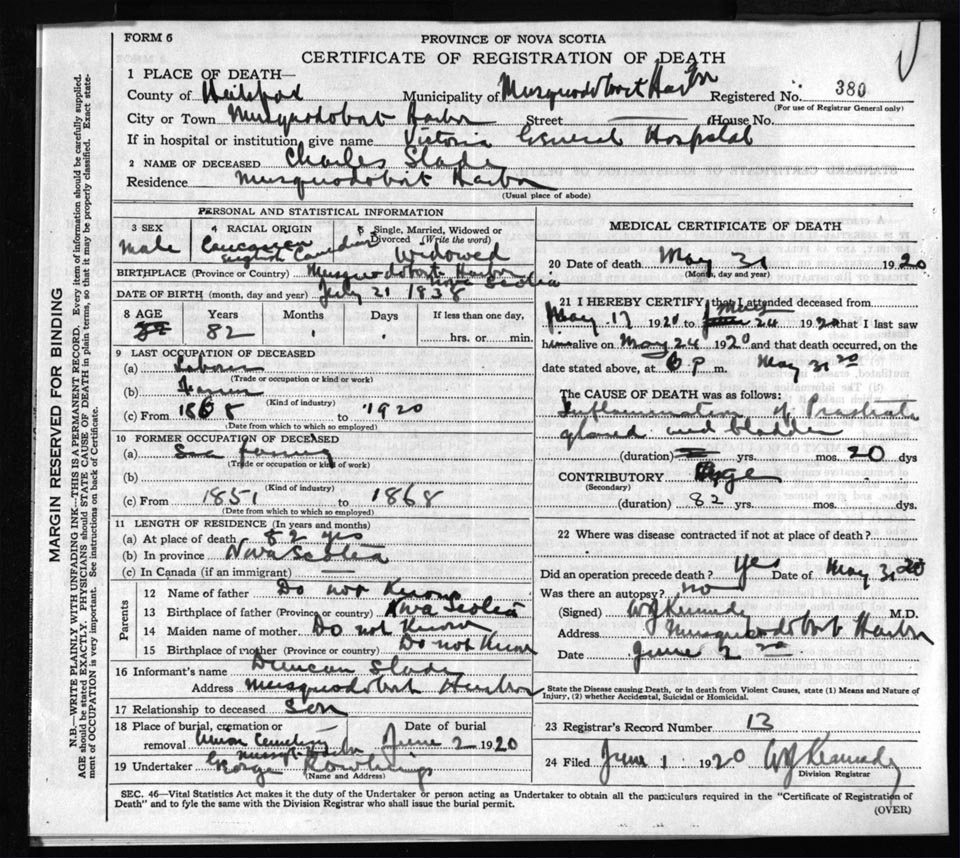 FORM 6
PROVINCE OF NOVA SCOTIA
CERTIFICATE OF REGISTRATION OF DEATH
1 PLACE OF DEATH—
County of Halifax Municipality of Musquodoboit Harbor Registered No. 380
(For use of Registrar General only)
City or Town Musquodoboit Harbor Street House No.
If in hospital or institution, give name Victoria General Hospital
2 NAME OF DECEASED Charles Slade
Residence Musquodoboit Harbor
(Usual place of abode)
PERSONAL AND STATISTICAL INFORMATION
3 SEX 4 RACIAL ORIGIN 5 Single, Married, Widowed or Divorced (Write the word)
Male Caucasian English Canadian Widowed
BIRTHPLACE (Province or Country) Musquodoboit Harbor Nova Scotia
DATE OF BIRTH (month, day and year) July 21 1838
8 AGE Years Months Days If less than one day,
82 hrs. or min.
9 LAST OCCUPATION OF DECEASED
(a) Labour
(Trade or occupation or kind or work)
(b) Farm
(Kind of industry)
(c) From 1868 to 1920
(Date from which to which so employed)
10 FORMER OCCUPATION OF DECEASED
(a) Sea
(Trade or occupation or kind of work)
(b)
(Kind of industry)
(c) From 1851 to 1868
(Date from which to which so employed)
11 LENGTH OF RESIDENCE (In years and months)
(a) At place of death 82 yrs
(b) In province Nova Scotia
(c) In Canada (if an immigrant)
Parents
12 Name of father Do not Know
13 Birthplace of father (Province or country) Nova Scotia
14 Maiden name of mother Do not Know
15 Birthplace of mother (Province or country) Do not Know
16 Informant's name Duncan Slade
Address Musquodoboit Harbor
17 Relationship to deceased Son
18 Place of burial, cremation or removal Union Cemetery Musqt Harbor Date of burial June 2 1920
19 Undertaker George Rowlings
(Name and Address)
MEDICAL CERTIFICATE OF DEATH
20 Date of death May 31 1920
(Month, day and year)
21 I HEREBY CERTIFY that I attended deceased from
May 17 1920 to May 24 1920 that I last saw
him alive on May 24 1920 and that death occurred, on the
date stated above, at 6 p m. May 31 20
The CAUSE OF DEATH was as follows:
Inflammation of Prostrate
gland and bladder
(duration) yrs. mos. 20 dys
CONTRIBUTORY Age
(Secondary)
(duration) 82 yrs. mos. dys.
22 Where was disease contracted if not at place of death?
Did an operation precede death? yes Date of May 31 20
Was there an autopsy? no
(Signed) WJ Kennedy M.D.
Address Musquodoboit Harbor
Date June 2 20
State the Disease causing Death, or in death from Violent Causes, state (1) Means and Nature of
Injury, (2) whether Accidental, Suicidal or Homicidal.
23 Registrar's Record Number 13
24 Filed June 1 1920 WJ Kennedy
Division Registrar
SEC. 46—Vital Statistics Act makes it the duty of the Undertaker or person acting as Undertaker to obtain all the particulars required in the "Certificate of Registration of
Death" and to fyle the same with the Division Registrar who shall issue the burial permit.
(OVER)
MARGIN RESERVED FOR BINDING
N.B.—WRITE PLAINLY WITH UNFADING INK—THIS IS A PERMANENT RECORD. Every item of information should be carefully supplied.
AGE should be stated EXACTLY. PHYSICIANS should STATE CAUSE OF DEATH in plain terms, so that it may be properly classified. Exact state-
ment of OCCUPATION is very important. See instructions on back of Certificate.